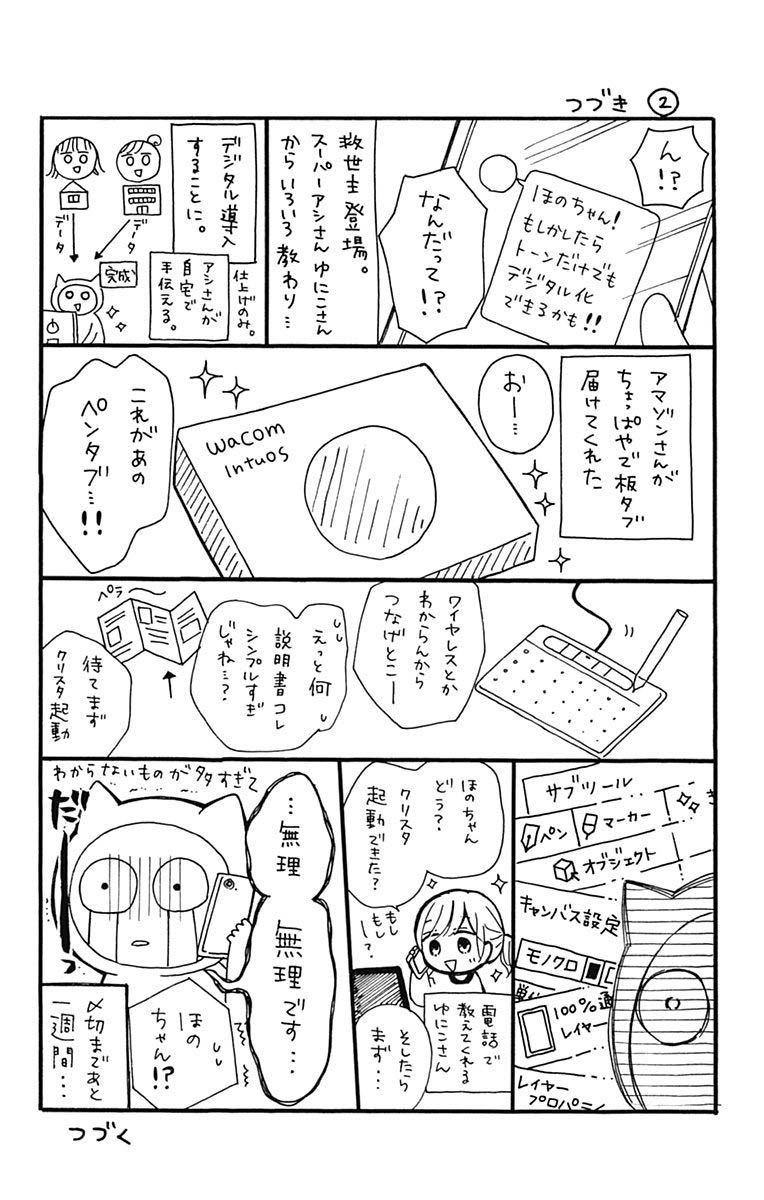 つづき ②
ん!?
ほのちゃん!
もしかしたら
トーンだけでも
デジタル化
できるかも!!
なんだって!?
救世主登場。
スーパーアシさんゆにこさん
からいろいろ教わり…
デジタル導入
することに。
仕上げのみ。
アシさんが
自宅で
手伝える。
データ
データ
完成
アマゾンさんが
ちょっぱやで板タブ
届けてくれた
おー…
wacom
Intuos
これがあの
ペンタブ…!!
ワイヤレスとか
わからんから
つなげとこー
えっと何
説明書コレ
シンプルすぎ
じゃね…?
ペラー
待てまず
クリスタ起動
サブツール
ペン
マーカー
オブジェクト
キャンバス設定
モノクロ
100%適
レイヤー
レイヤー
プロパティ
ほのちゃん
どう?
クリスタ
起動できた?
もし
もしー?
電話で
教えてくれる
ゆにこさん
そしたら
まず…
わからないものが多すぎて
…無理
無理です…
だーっ
ほの
ちゃん!?
〆切まであと
一週間…
つづく